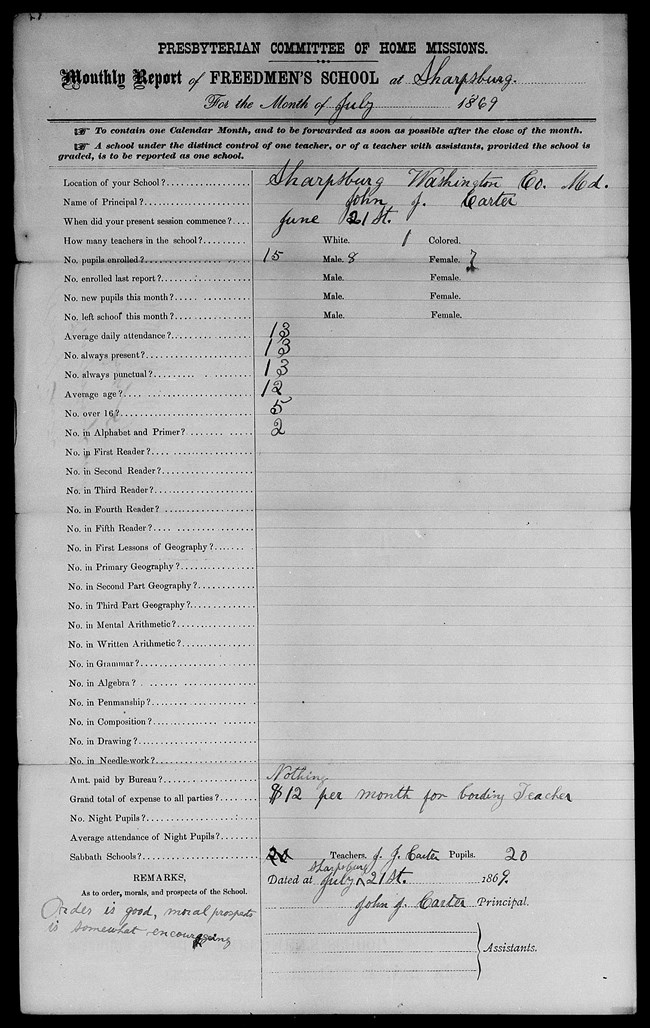 PRESBYTERIAN COMMITTEE OF HOME MISSIONS.
Monthly Report of FREEDMEN'S SCHOOL at Sharpsburg.
For the Month of July 1869
☞ To contain one Calendar Month, and to be forwarded as soon as possible after the close of the month.
☞ A school under the distinct control of one teacher, or of a teacher with assistants, provided the school is
graded, is to be reported as one school.
Location of your School? Sharpsburg Washington Co. Md.
Name of Principal? John J. Carter
When did your present session commence? June 21st.
How many teachers in the school? White. 1 Colored.
No. pupils enrolled? 15 Male. 8 Female. 7
No. enrolled last report? Male. Female.
No. new pupils this month? Male. Female.
No. left school this month? Male. Female.
Average daily attendance? 13
No. always present? 13
No. always punctual? 13
Average age? 12
No. over 16? 5
No. in Alphabet and Primer? 2
No. in First Reader?
No. in Second Reader?
No. in Third Reader?
No. in Fourth Reader?
No. in Fifth Reader?
No. in First Lessons of Geography?
No. in Primary Geography?
No. in Second Part Geography?
No. in Third Part Geography?
No. in Mental Arithmetic?
No. in Written Arithmetic?
No. in Grammar?
No. in Algebra?
No. in Penmanship?
No. in Composition?
No. in Drawing?
No. in Needle-work?
Amt. paid by Bureau? Nothing
Grand total of expense to all parties? $12 per month for bording Teacher
No. Night Pupils?
Average attendance of Night Pupils?
Sabbath Schools? Teachers. J. J. Carter Pupils. 20
REMARKS,
As to order, morals, and prospects of the School.
Order is good, moral prospects
is somewhat encourageing
Dated at Sharpsburg July 21st. 1869.
John J. Carter Principal.
Assistants.